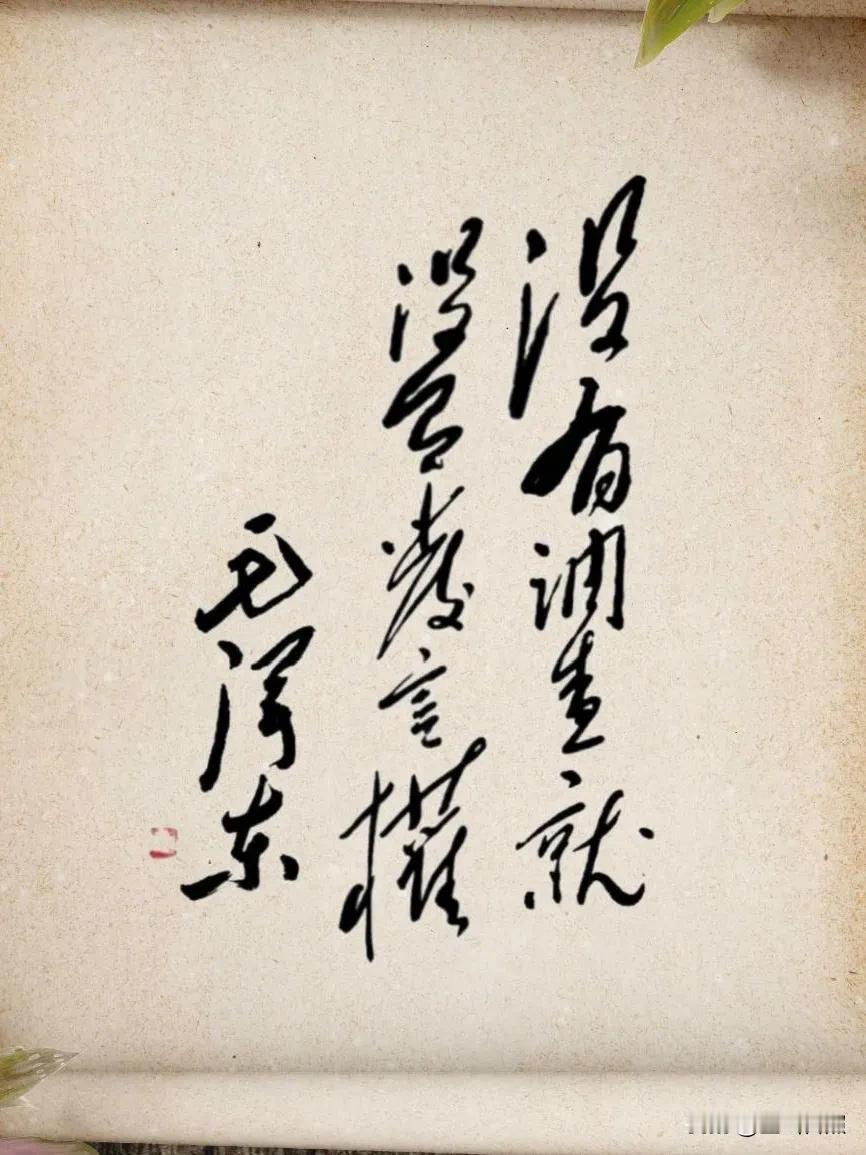 没有调查就
没有发言權
毛泽东